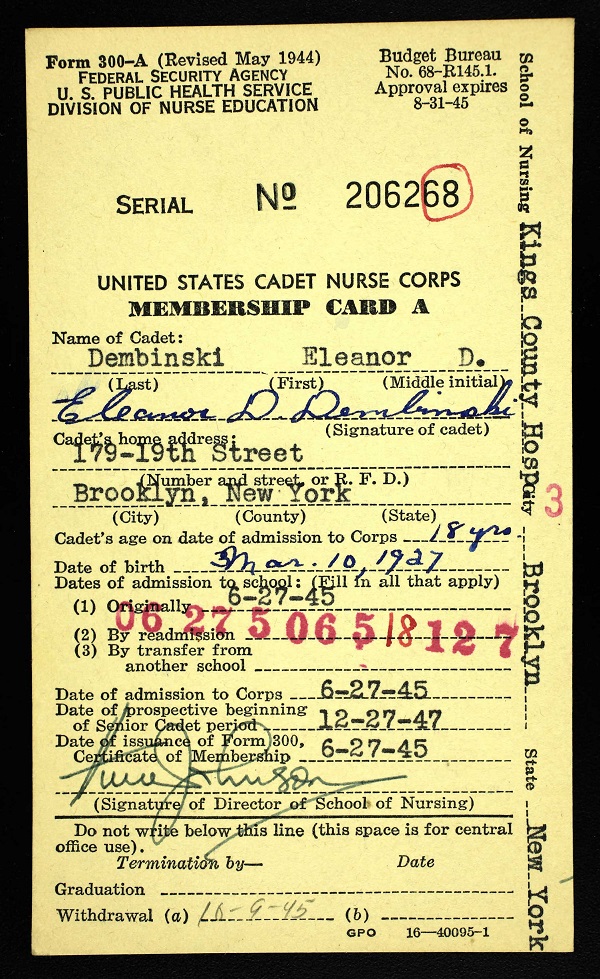 Form 300-A (Revised May 1944)
FEDERAL SECURITY AGENCY
U. S. PUBLIC HEALTH SERVICE
DIVISION OF NURSE EDUCATION
Budget Bureau
No. 68-R145.1.
Approval expires
8-31-45
SERIAL No 206268
UNITED STATES CADET NURSE CORPS
MEMBERSHIP CARD A
Name of Cadet:
Dembinski Eleanor D.
(Last) (First) (Middle initial)
Eleanor D. Dembinski
(Signature of cadet)
Cadet's home address:
179-19th Street
(Number and street, or R. F. D.)
Brooklyn, New York
(City) (County) (State)
Cadet's age on date of admission to Corps 18 yrs.
Date of birth Mar. 10, 1927
Dates of admission to school: (Fill in all that apply)
(1) Originally 6-27-45
06 27 5 06 5 18 12 7
(2) By readmission
(3) By transfer from
another school
Date of admission to Corps 6-27-45
Date of prospective beginning
of Senior Cadet period 12-27-47
Date of issuance of Form 300,
Certificate of Membership 6-27-45
(Signature of Director of School of Nursing)
Do not write below this line (this space is for central
office use).
Termination by— Date
Graduation
Withdrawal (a) 10-9-45 (b)
GPO 16—40095-1
School of Nursing Kings County Hosp City Brooklyn State New York
3